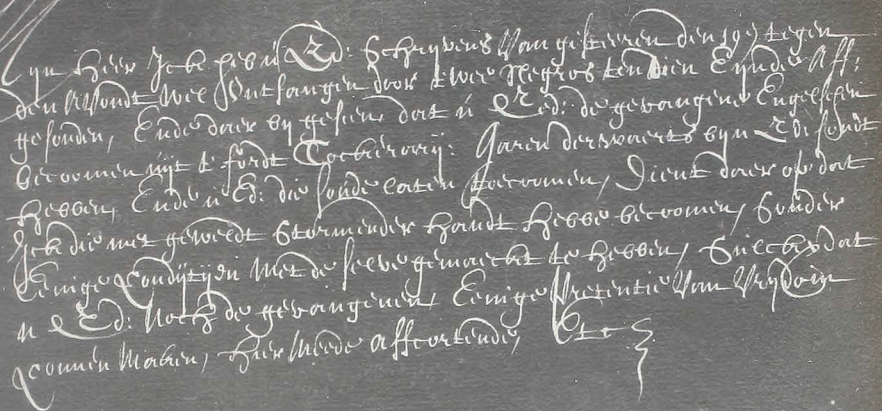 Myn Heer Ick heb u Ed: Schryvens van gisteren den 19e tegen
den Avondt wel Ontfangen door twee Negros ten dien Eynde Aff:
gesonden, Ende daer by gesien, dat u Ed: de gevangene Engelschen
becoomen uyt t' fordt gaeren derwaerts byn Ed: sondt
hebben, Ende u Ed: die soude laten toecoomen, Dient daer op dat
Ick die met geweldt Stormender handt hebbe becoomen, Sonder
Eenige Condytyen Met de selve gemaeckt te hebben, Sulckx dat
u Ed: Noch de gevangenen, Eenige Pretentie Van Vrydom
connen Maken, hier Meede affcortende, Etc